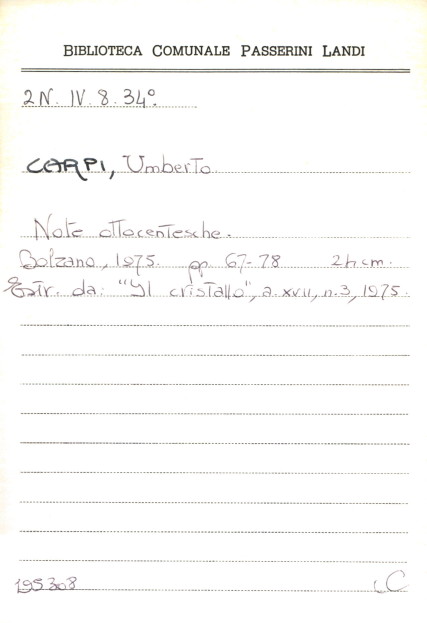 BIBLIOTECA COMUNALE PASSERINI LANDI
2N. IV. 8. 34º.
CARPI, Umberto
Note ottocentesche.
Bolzano, 1975. pp. 67-78 24 cm.
Estr. da: "Il cristallo", a. XVII, n. 3, 1975.
195308